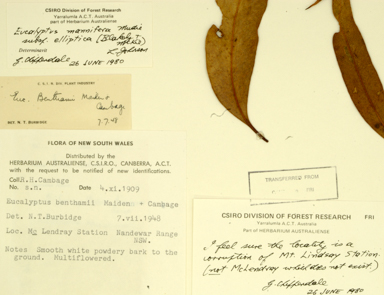 CSIRO Division of Forest Research
Yarralumla A.C.T. Australia
part of Herbarium Australiense
Eucalyptus mannifera Mudie
subsp. elliptica (Blakely &
McKie) L. Johnson
Determinavit
G. Chippendale 26 JUNE 1980
C.S.I.R.O. PLANT INDUSTRY
Euc. Benthami Maiden &
Cambage
DET. N. T. BURBIDGE 7.7.48
FLORA OF NEW SOUTH WALES
Distributed by the
HERBARIUM AUSTRALIENSE, C.S.I.R.O., CANBERRA, A.C.T.
with the request to be notified of new identifications.
Coll. R.H.Cambage
No. s.n. Date 4.xi.1909
Eucalyptus benthamii Maiden & Cambage
Det. N.T.Burbidge 7.vii.1948
Loc. Mc Lendray Station Nandewar Range
NSW.
Notes Smooth white powdery bark to the
ground. Multiflowered.
TRANSFERRED FROM
CSIRO DIVISION OF FOREST RESEARCH FRI
Yarralumla A.C.T. Australia
Part of HERBARIUM AUSTRALIENSE
I feel sure the locality is a
corruption of Mt. Lindsay Station.
(not McLendray which does not exist)
G. Chippendale
26 JUNE 1980